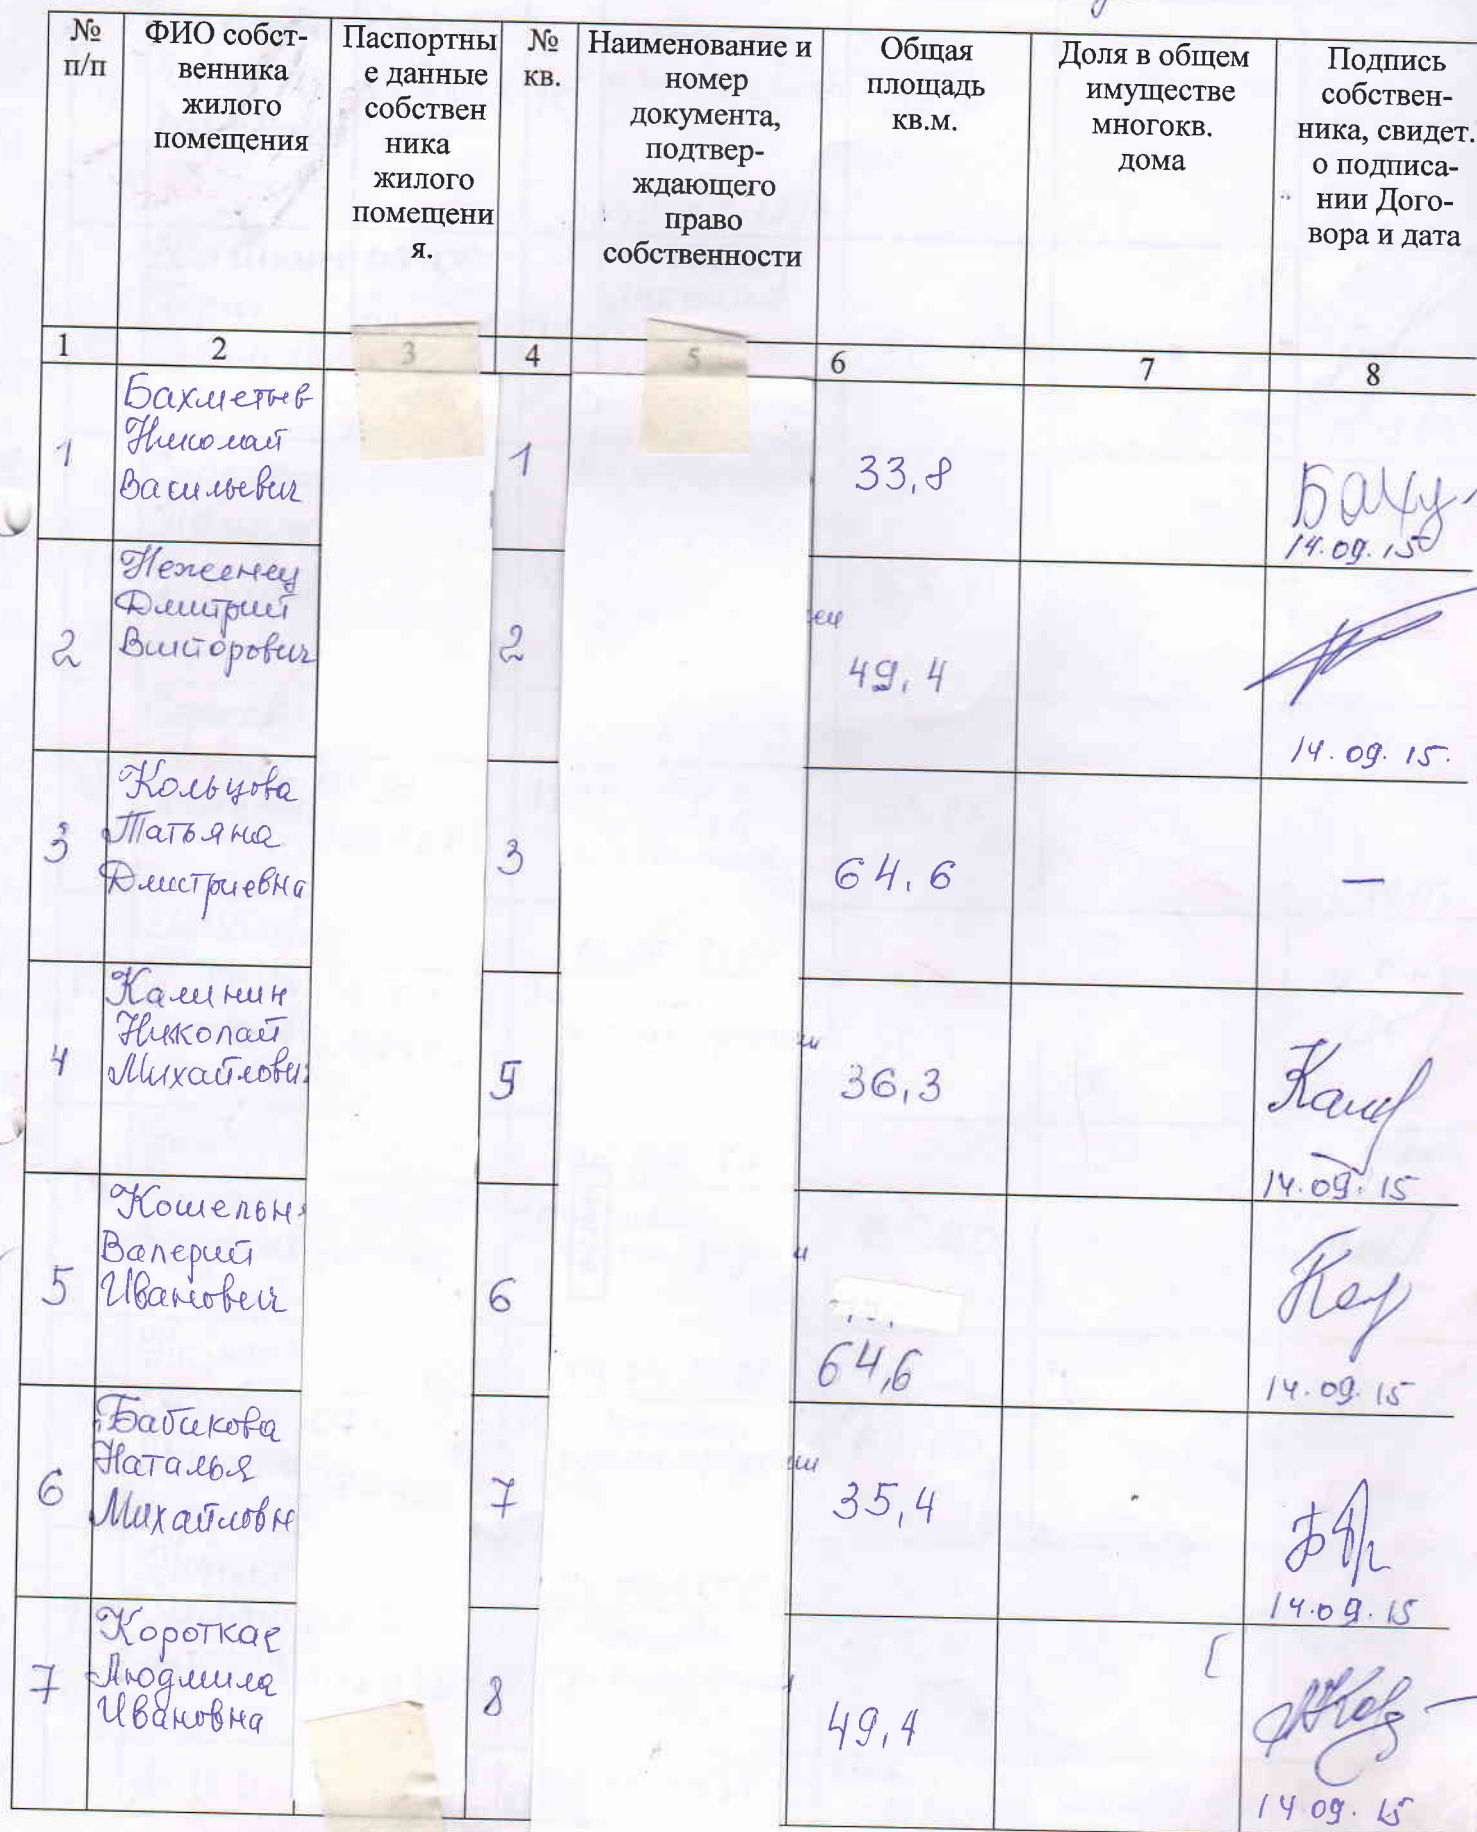 № п/п
ФИО собст-
венника
жилого
помещения
Паспортны
е данные
собствен
ника
жилого
помещени
я.
№
кв.
Наименование и
номер
документа,
подтвер-
ждающего
право
собственности
Общая
площадь
кв.м.
Доля в общем
имуществе
многокв.
дома
Подпись
собствен-
ника, свидет.
о подписа-
нии Дого-
вора и дата
1 2 3 4 5 6 7 8
1
Бахметьев
Николай
Васильевич
1
33,8
14.09.15
2
Неженец
Дмитрий
Викторович
2
49,4
14.09.15.
3
Кольцова
Татьяна
Дмитриевна
3
64,6
—
4
Калинин
Николай
Михайлович
5
36,3
14.09.15
5
Кошельн
Валерий
Иванович
6
64,6
14.09.15
6
Бабикова
Наталья
Михайловн
7
35,4
14.09.15
7
Короткая
Людмила
Ивановна
8
49,4
14.09.15